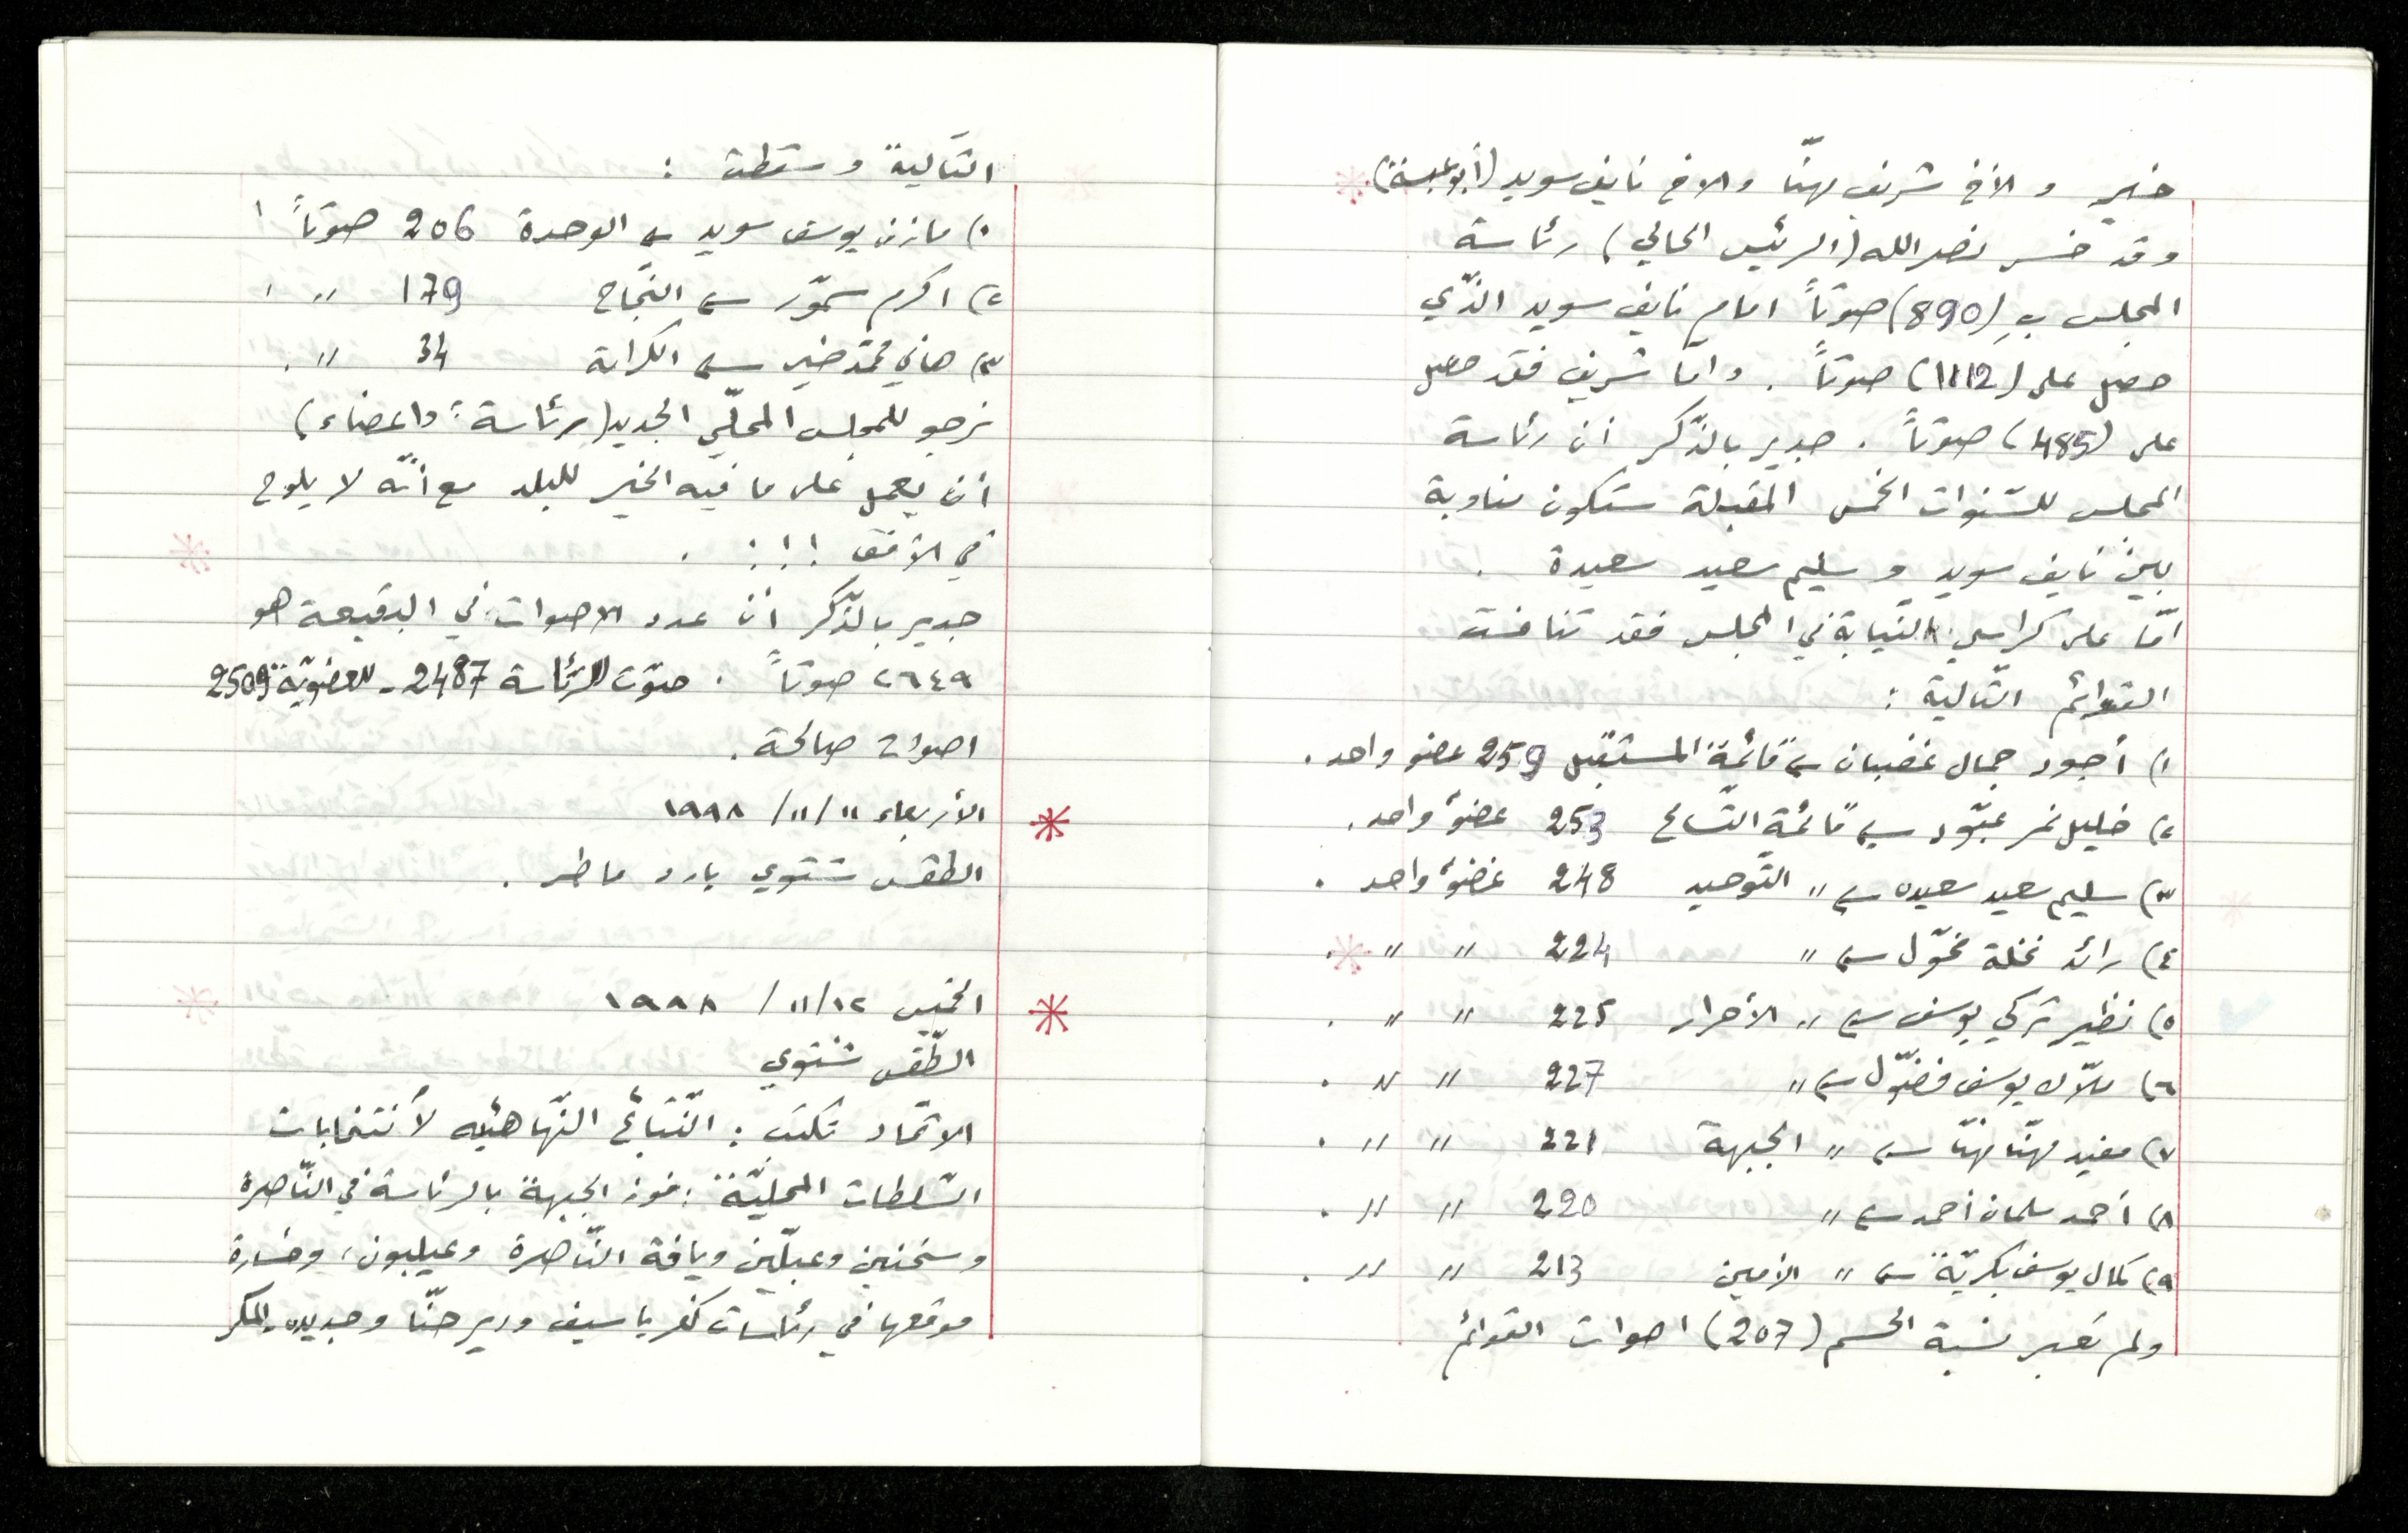 خير و الأخ شريف مهنّا والاخ نايف سويد (أبو عبسة)
وقد خسر نصر الله (الرئيس الحالي) رئاسة
المجلس بـِ (890) صوتاً امام نايف سويد الذّي
حصل على (1112) صوتاً . وامّا شريف فقد حصل
على (485) صوتاً . جدير بالذّكر أن رئاسة
المجلس للسّنوات الخمس المقبلة ستكون مناوبة
بين نايف سويد و سليم سعيد سعيدة .
امّا على كراسي النّيابة في المجلس فقد تنافست
القوائم التّالية :
١) أجود جمال غضبان قائمة المستقبل 259 عضو واحد .
٢) خليل نمر عبّود قائمة التّسامح 253 عضوٌ واحد .
٣) سليم سعيد سعيده " التّوحيد 248 عضوٌ واحد .
٤) رائد نخلة مخّول " 224 " " .
٥) نظير تركي يوسف " الأحرار 225 " " .
٦) ملّاك يوسف فضّول " 227 " " .
٧) مفيد مهنّا مهنّا " الجبهة 221 " " .
٨) أحمد سلمان أحمد " 220 " " .
٩) كمال يوسف بكريّة " الأمين 213 " " .
ولم تعبر نسبة الحسم (207) اصوات القوائم
التّالية وسقطت :
١) مازن يوسف سويد الوحدة 206 صوتاً
٢) اكرم سمّور النّجاح 179 "
٣) هاني محمّد خير الكرامة 34 " .
نرجو للمجلس المحلّي الجديد (برئاسة واعضاء)
أن يعمل على ما فيه الخير للبلد مع أنّه لا يلوح
في الأفق !!! .
جدير بالذّكر أن عدد الاصوات في البقيعة هو
٢٦٤٩ صوتاً . صوّت للرّئاسة 2487 - للعضويّة 2509
اصوات صالحة .
* الأربعاء ١١/١١/ ١٩٩٨
الطقس شتوي بارد ماطر .
* الخميس ١٢/١١/ ١٩٩٨
الطّقس شتوي
الاتّحاد تكتب : النّتائج النّهائيه لأنتخابات
السّلطات المحليّة : فوز الجبهة بالرئاسة في النّاصرة
وسخنين وعبلّين ويافة النّاصرة وعيلبون، وخسارة
موقعها في رئاسات كفر ياسيف ودير حنّا وجديده - المكر